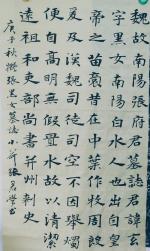 魏故南陽張府君墓誌君諱玄
字黑女南陽白水人也出自皇
帝之苗裔昔在中葉作牧周殷
爰及漢魏司徒司空不因舉燭
便自高明無假置水故以清潔
遠祖和吏部尚書并州刺史
庚子秋臨張黑女墓誌